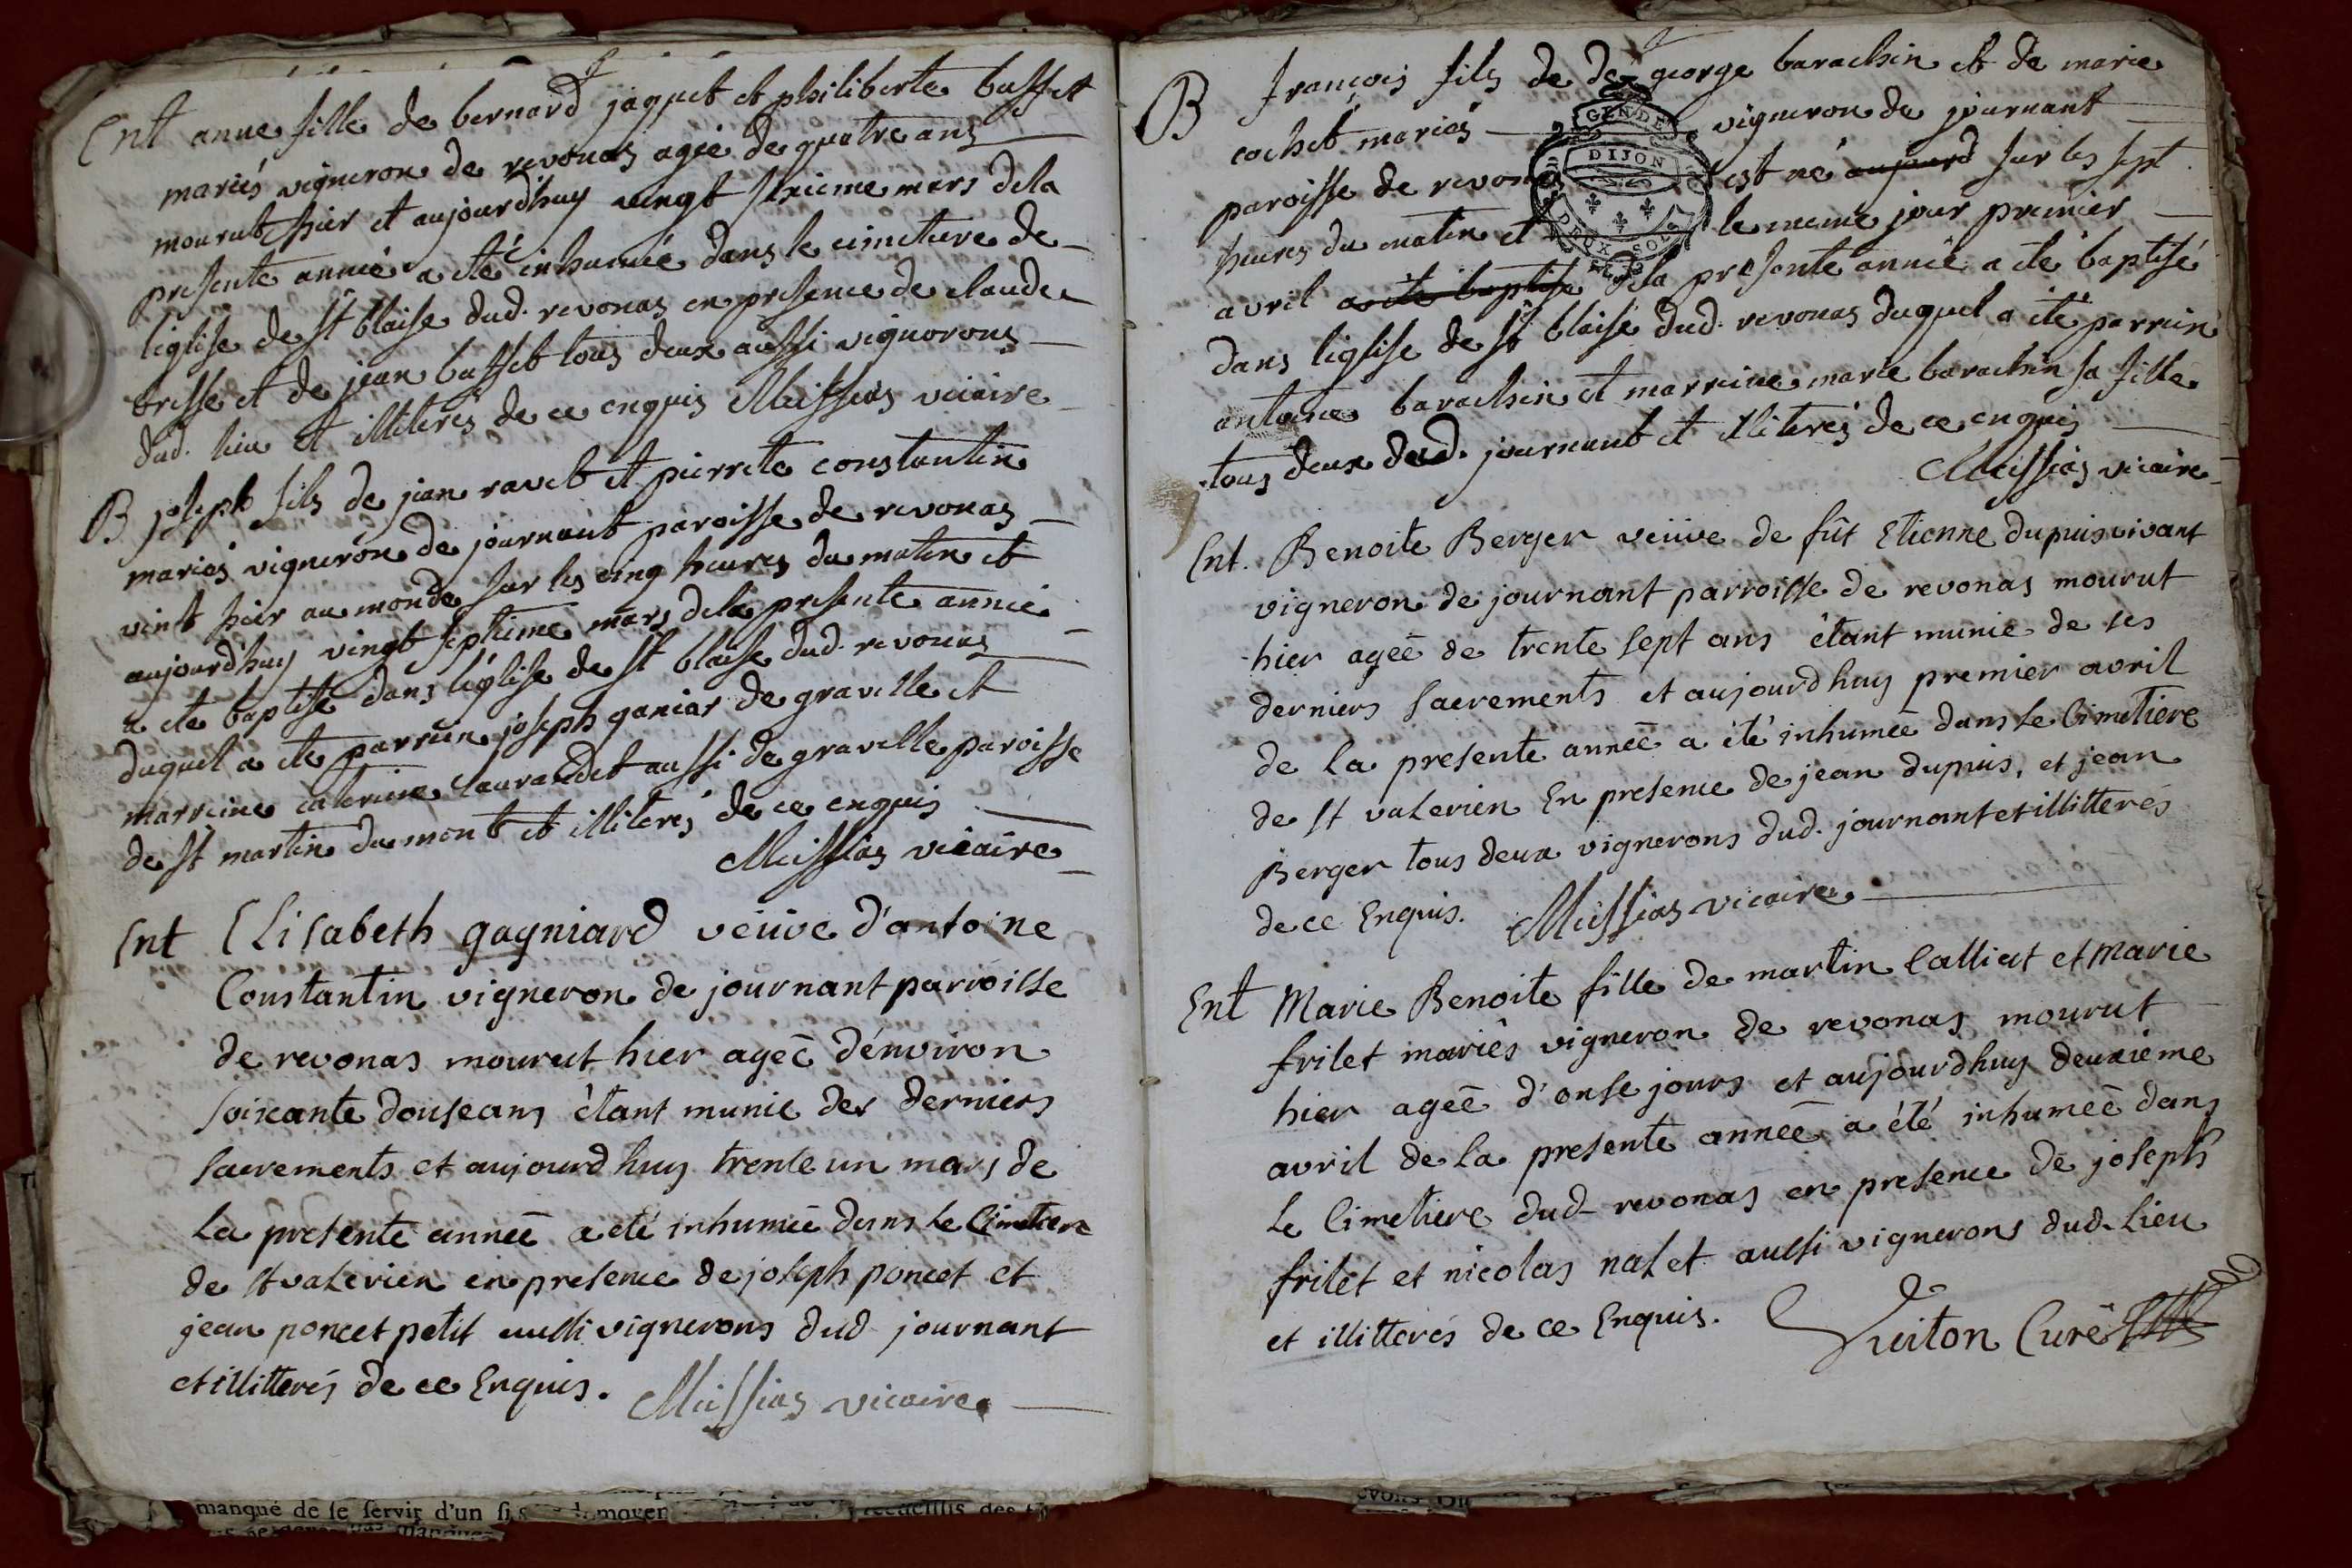 Ent anne fille de bernard jaquet et philiberte buffet
mariés vigneron de revonas agée de quatre ans
mourut hier et aujourd'huy vingt sixieme mars dela
presente année a eté inhumée dans le cimetiere de
l'église de st blaise dud. revonas en presence de claude
bresse et de jean buffet tous deux aussi vignerons
dud. lieu et illiterés de ce enquis Meissias vicaire
B joseph fils de jean ravet et pierrete constantin
mariés vigneron de journant paroisse de revonas
vint hier au monde sur les cinq heures du matin et
aujourd'huy vingt septieme mars dela presente année
a eté baptisé dans l'église de st blaise dud. revonas
duquel a eté parrein joseph ganiar de gravelle et
marreine caterine aussi de gravelle paroisse
de st martin du mont et illiterés de ce enquis
Meissias vicaire
Ent Elisabeth gagniard veuve d'antoine
Constantin vigneron de journant parroisse
de revonas mourut hier agée d'environ
soixante douse ans étant munie des derniers
sacrements et aujourdhuy trente un mars de
la presente année a eté inhumée dans le Cimetiere
de st valerien en presence de joseph poncet et
jean poncet petit aussi vignerons dud. journant
et illitterés de ce Enquis. Meissias vicaire
B françois fils de de george barachin et de marie
cochet mariés vigneron de journant
GEN DE
DIJON
DEUX SOLS
paroisse de revonas est né aujourd sur les sept
heures du matin et le meme jour premier
avril a eté baptisé dela presente année a eté baptisé
dans l'église de st blaise dud. revonas duquel a eté parrein
antoine barachin et marreine marie barachin sa fille
tous deux dud. journant et illiterés de ce enquis
Meissias vicaire
Ent. Benoite Berger veüive de fût Etienne dupuis vivant
vigneron de journant parroisse de revonas mourut
hier agée de trente sept ans étant munie de ses
derniers sacrements et aujourdhuy premier avril
de la presente année a été inhumée dans le Cimetiere
de st valerien En presence de jean dupuis, et jean
Berger tous deux vignerons dud. journant et illitterés
de ce Enquis. Meissias vicaire
Ent Marie Benoite fille de martin Calliat et Marie
frilet mariés vigneron de revonas mourut
hier agée d'onse jours et aujourdhuy deuxieme
avril de la presente année a été inhumée dans
le Cimetiere dud. revonas en presence de joseph
frilet et nicolas nalet aussi vignerons dud. lieu
et illitterés de ce Enquis. Curé
manqué de se servir d'un moyen